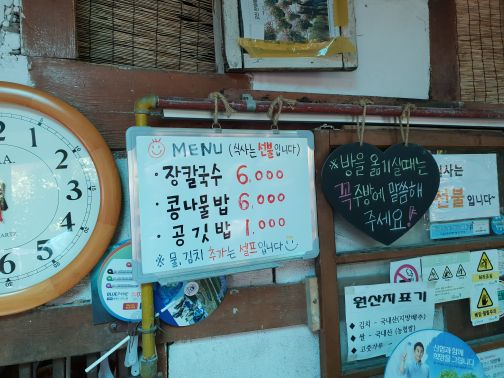 MENU (식사는 선불입니다)
· 장칼국수 6.000
· 콩나물밥 6.000
· 공깃밥 1.000
※ 물, 김치 추가는 셀프입니다
※ 방을 옮기실때는
꼭 주방에 말씀해
주세요!
식사는
선불입니다
원산지표기
김치 - 국내산(지방배추)
쌀 - 국내산 (농협쌀)
고춧가루 -
산업과 함께